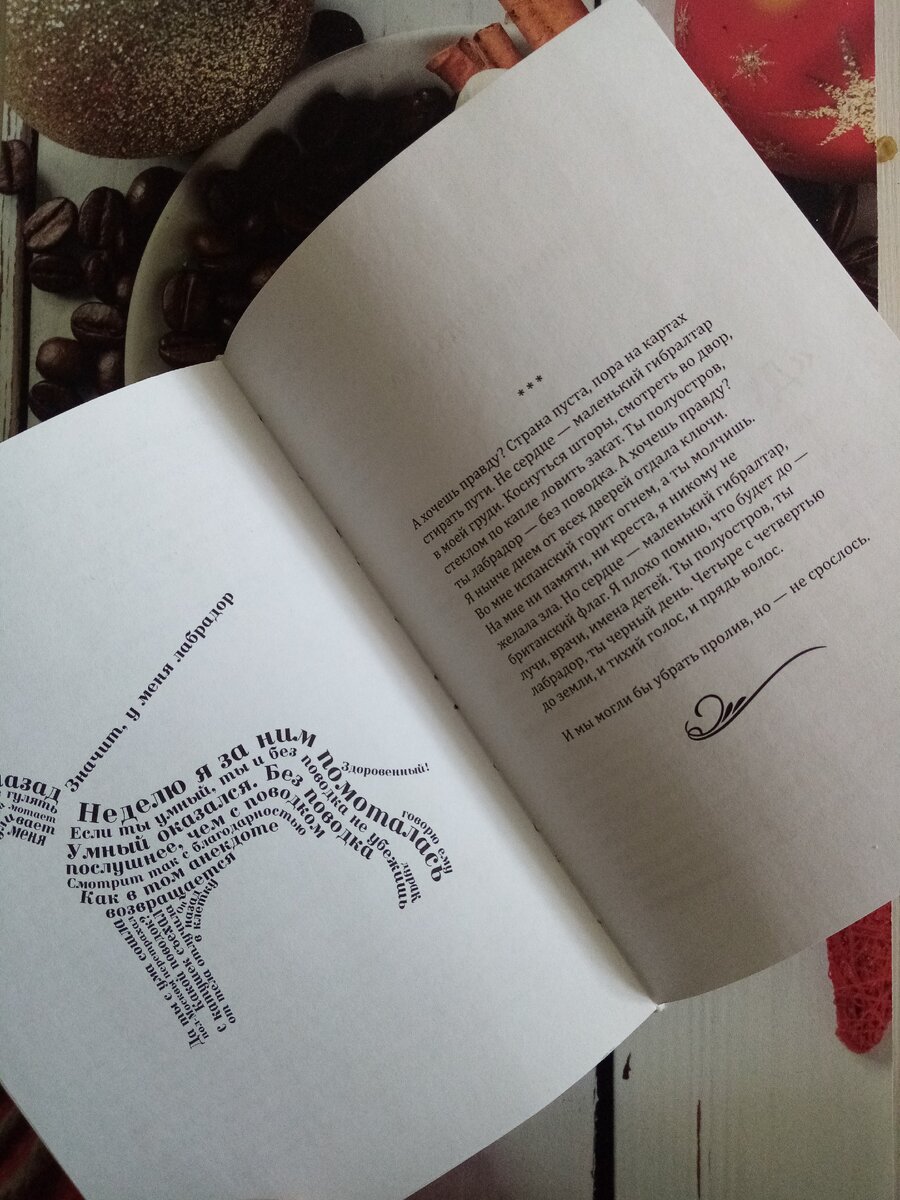 Значит, у меня лабрадор
назад
гулять
мотает
меня
Неделю я за ним помоталась
Здоровенный!
Если ты умный, ты и без поводка не убежишь
говорю ему
дурак
Умный оказался. Без поводка
послушнее, чем с поводком
Смотрит так с благодарностью
Как в том анекдоте
возвращается
назад
в клетку
от тела отлучило
с катушек съехал
Какой поводок?
Да ты с ума сошла
***
А хочешь правду? Страна пуста, пора на картах
стирать пути. Не сердце — маленький гибралтар
в моей груди. Коснуться шторы, смотреть во двор,
стеклом по капле ловить закат. Ты полуостров,
ты лабрадор — без поводка. А хочешь правду?
Я нынче днем от всех дверей отдала ключи.
Во мне испанский горит огнем, а ты молчишь.
На мне ни памяти, ни креста, я никому не
желала зла. Но сердце — маленький гибралтар,
британский флаг. Я плохо помню, что будет до —
лучи, врачи, имена детей. Ты полуостров, ты
лабрадор, ты черный день. Четыре с четвертью
до земли, и тихий голос, и прядь волос.
И мы могли бы убрать пролив, но — не срослось.